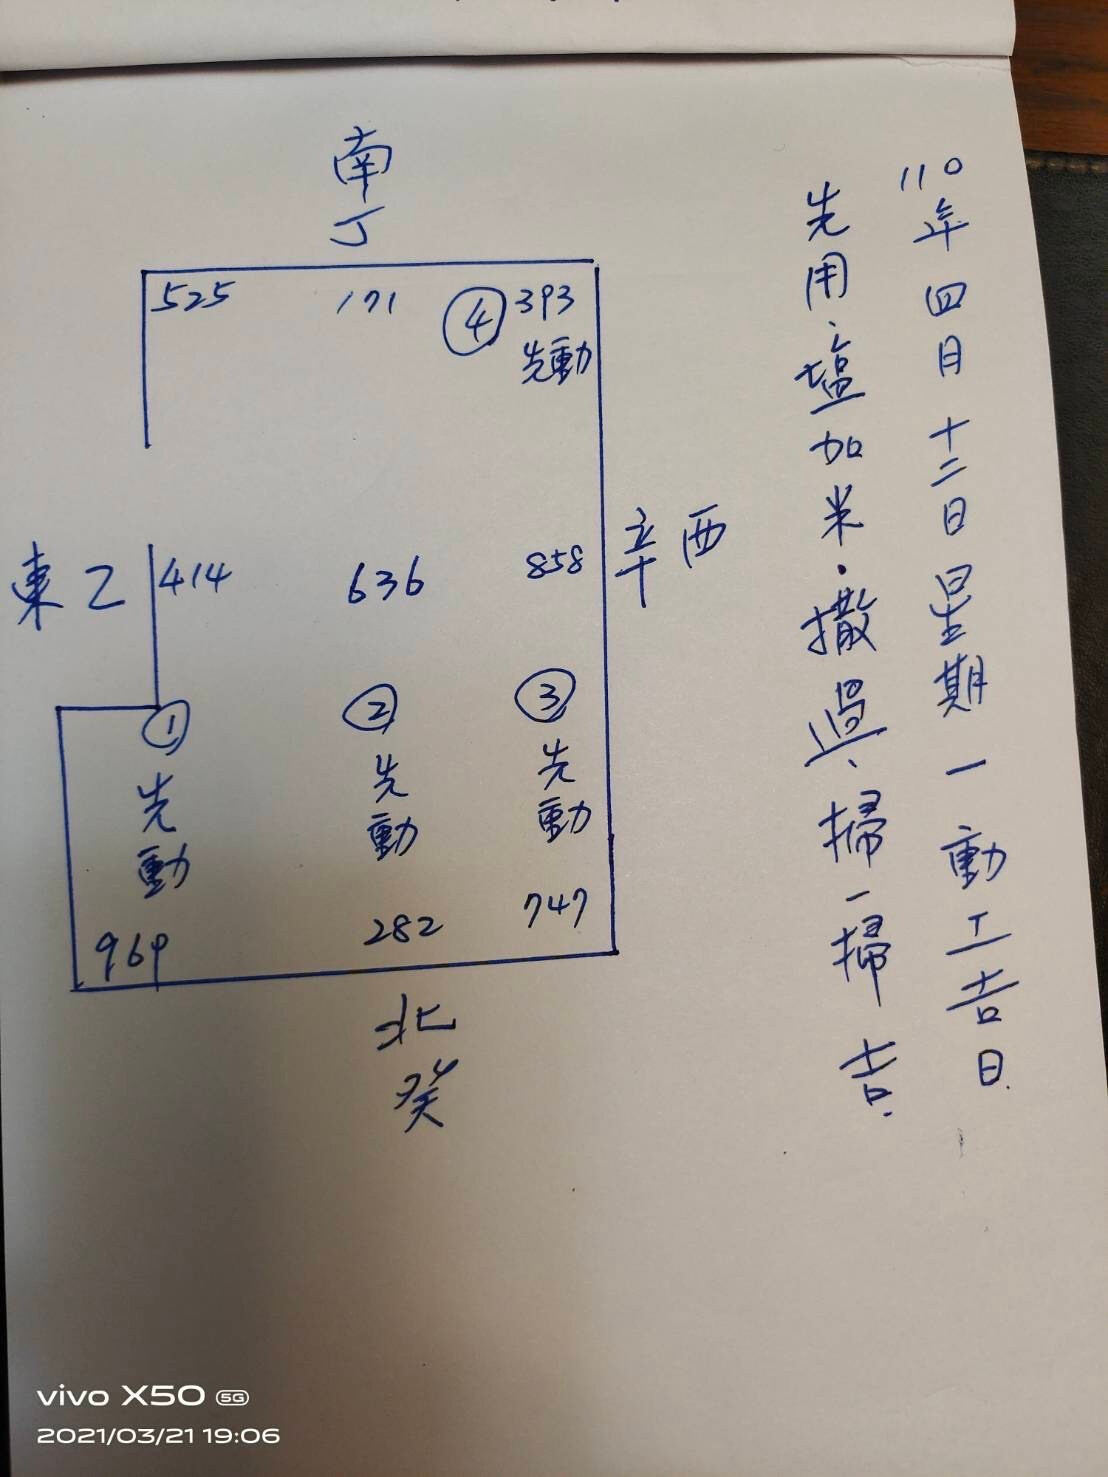 110年四月十二日星期一動工吉日.
先用塩加米.撒過、掃一掃吉.
南
丁
525 171 ④ 393
先動
東乙 414 636 858 辛西
① ② ③
先動 先動 先動
969 282 747
北
癸
vivo X50 5G
2021/03/21 19:06